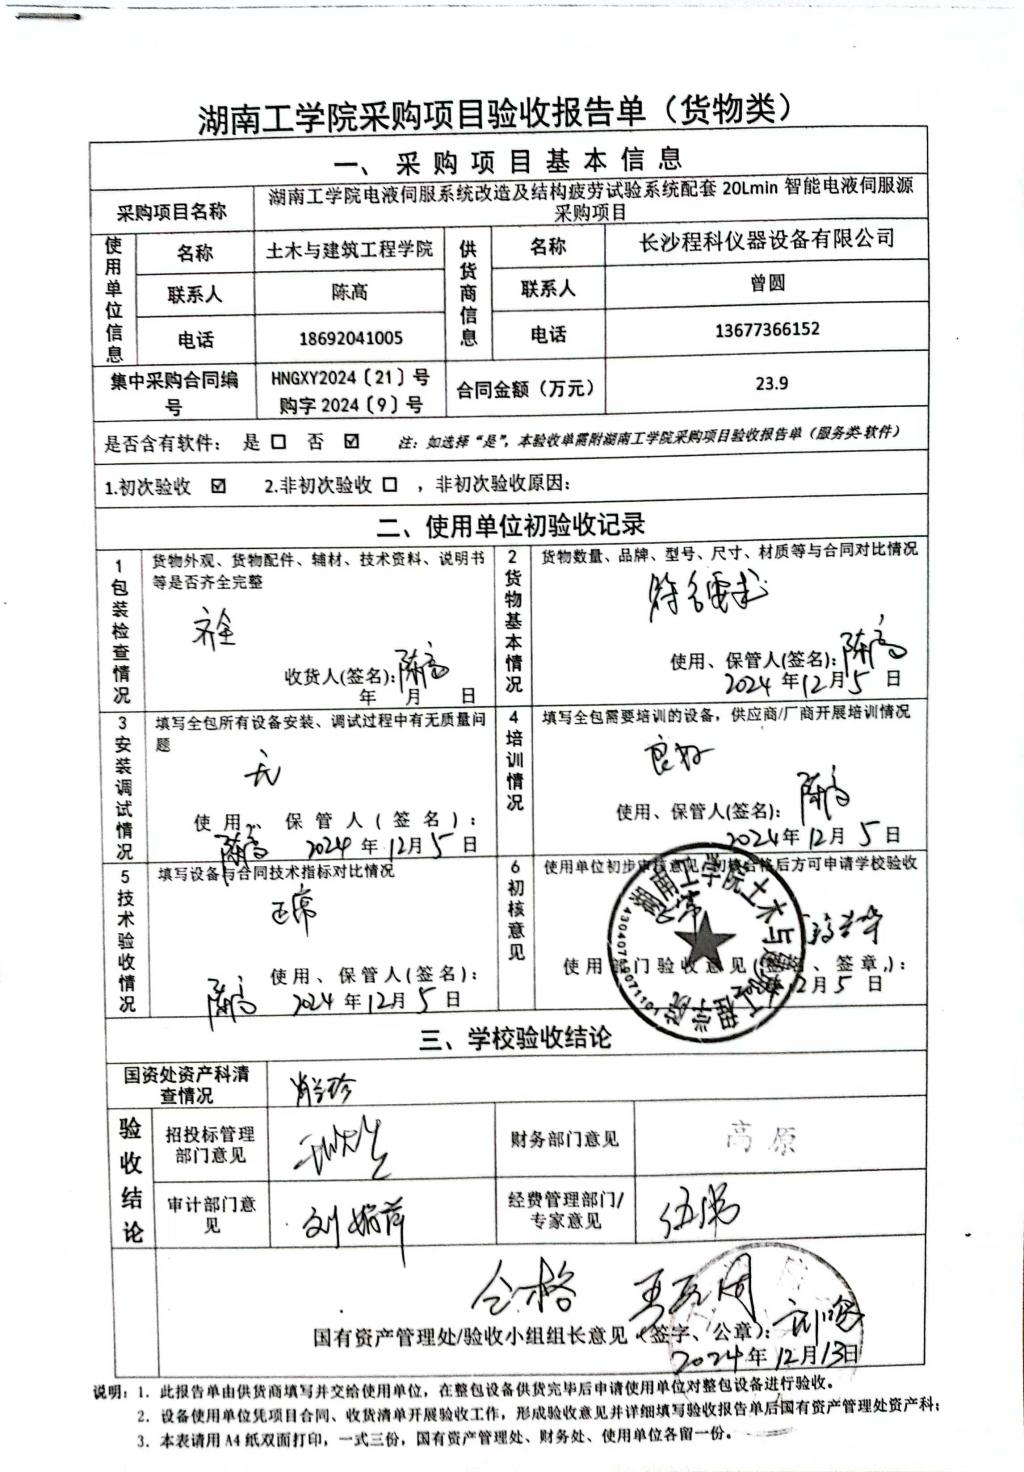 湖南工学院采购项目验收报告单（货物类）
一、采购项目基本信息
采购项目名称
湖南工学院电液伺服系统改造及结构疲劳试验系统配套 20Lmin 智能电液伺服源
采购项目
使用单位信息
名称
土木与建筑工程学院
供货商信息
名称
长沙程科仪器设备有限公司
联系人
陈高
联系人
曾圆
电话
18692041005
电话
13677366152
集中采购合同编
号
HNGXY2024〔21〕号
购字 2024〔9〕号
合同金额（万元）
23.9
是否含有软件： 是 □ 否 ☑ 注：如选择“是”，本验收单需附湖南工学院采购项目验收报告单（服务类-软件）
1.初次验收 ☑ 2.非初次验收 □ ，非初次验收原因：
二、使用单位初验收记录
1包装检查情况
货物外观、货物配件、辅材、技术资料、说明书
等是否齐全完整
齐全
收货人(签名):陈高
年 月 日
2货物基本情况
货物数量、品牌、型号、尺寸、材质等与合同对比情况
符合要求
使用、保管人(签名):陈高
2024年12月5日
3安装调试情况
填写全包所有设备安装、调试过程中有无质量问
题
无
使用、保管人(签名):
陈高 2024年12月5日
4培训情况
填写全包需要培训的设备，供应商/厂商开展培训情况
良好
使用、保管人(签名): 陈高
2024年12月5日
5技术验收情况
填写设备与合同技术指标对比情况
正常
使用、保管人(签名):
陈高 2024年12月5日
6初核意见
使用单位初步审核意见，初核合格后方可申请学校验收
正常
使用部门验收意见(签名、签章,):
12月5日
湖南工学院土木与建筑工程学院
三、学校验收结论
国资处资产科清
查情况
验收结论
招投标管理
部门意见
财务部门意见
高原
审计部门意
见
经费管理部门/
专家意见
合格
国有资产管理处/验收小组组长意见（签字、公章）：
2024年12月13日
说明：1. 此报告单由供货商填写并交给使用单位，在整包设备供货完毕后申请使用单位对整包设备进行验收。
2. 设备使用单位凭项目合同、收货清单开展验收工作，形成验收意见并详细填写验收报告单后国有资产管理处资产科；
3. 本表请用 A4 纸双面打印，一式三份，国有资产管理处、财务处、使用单位各留一份。